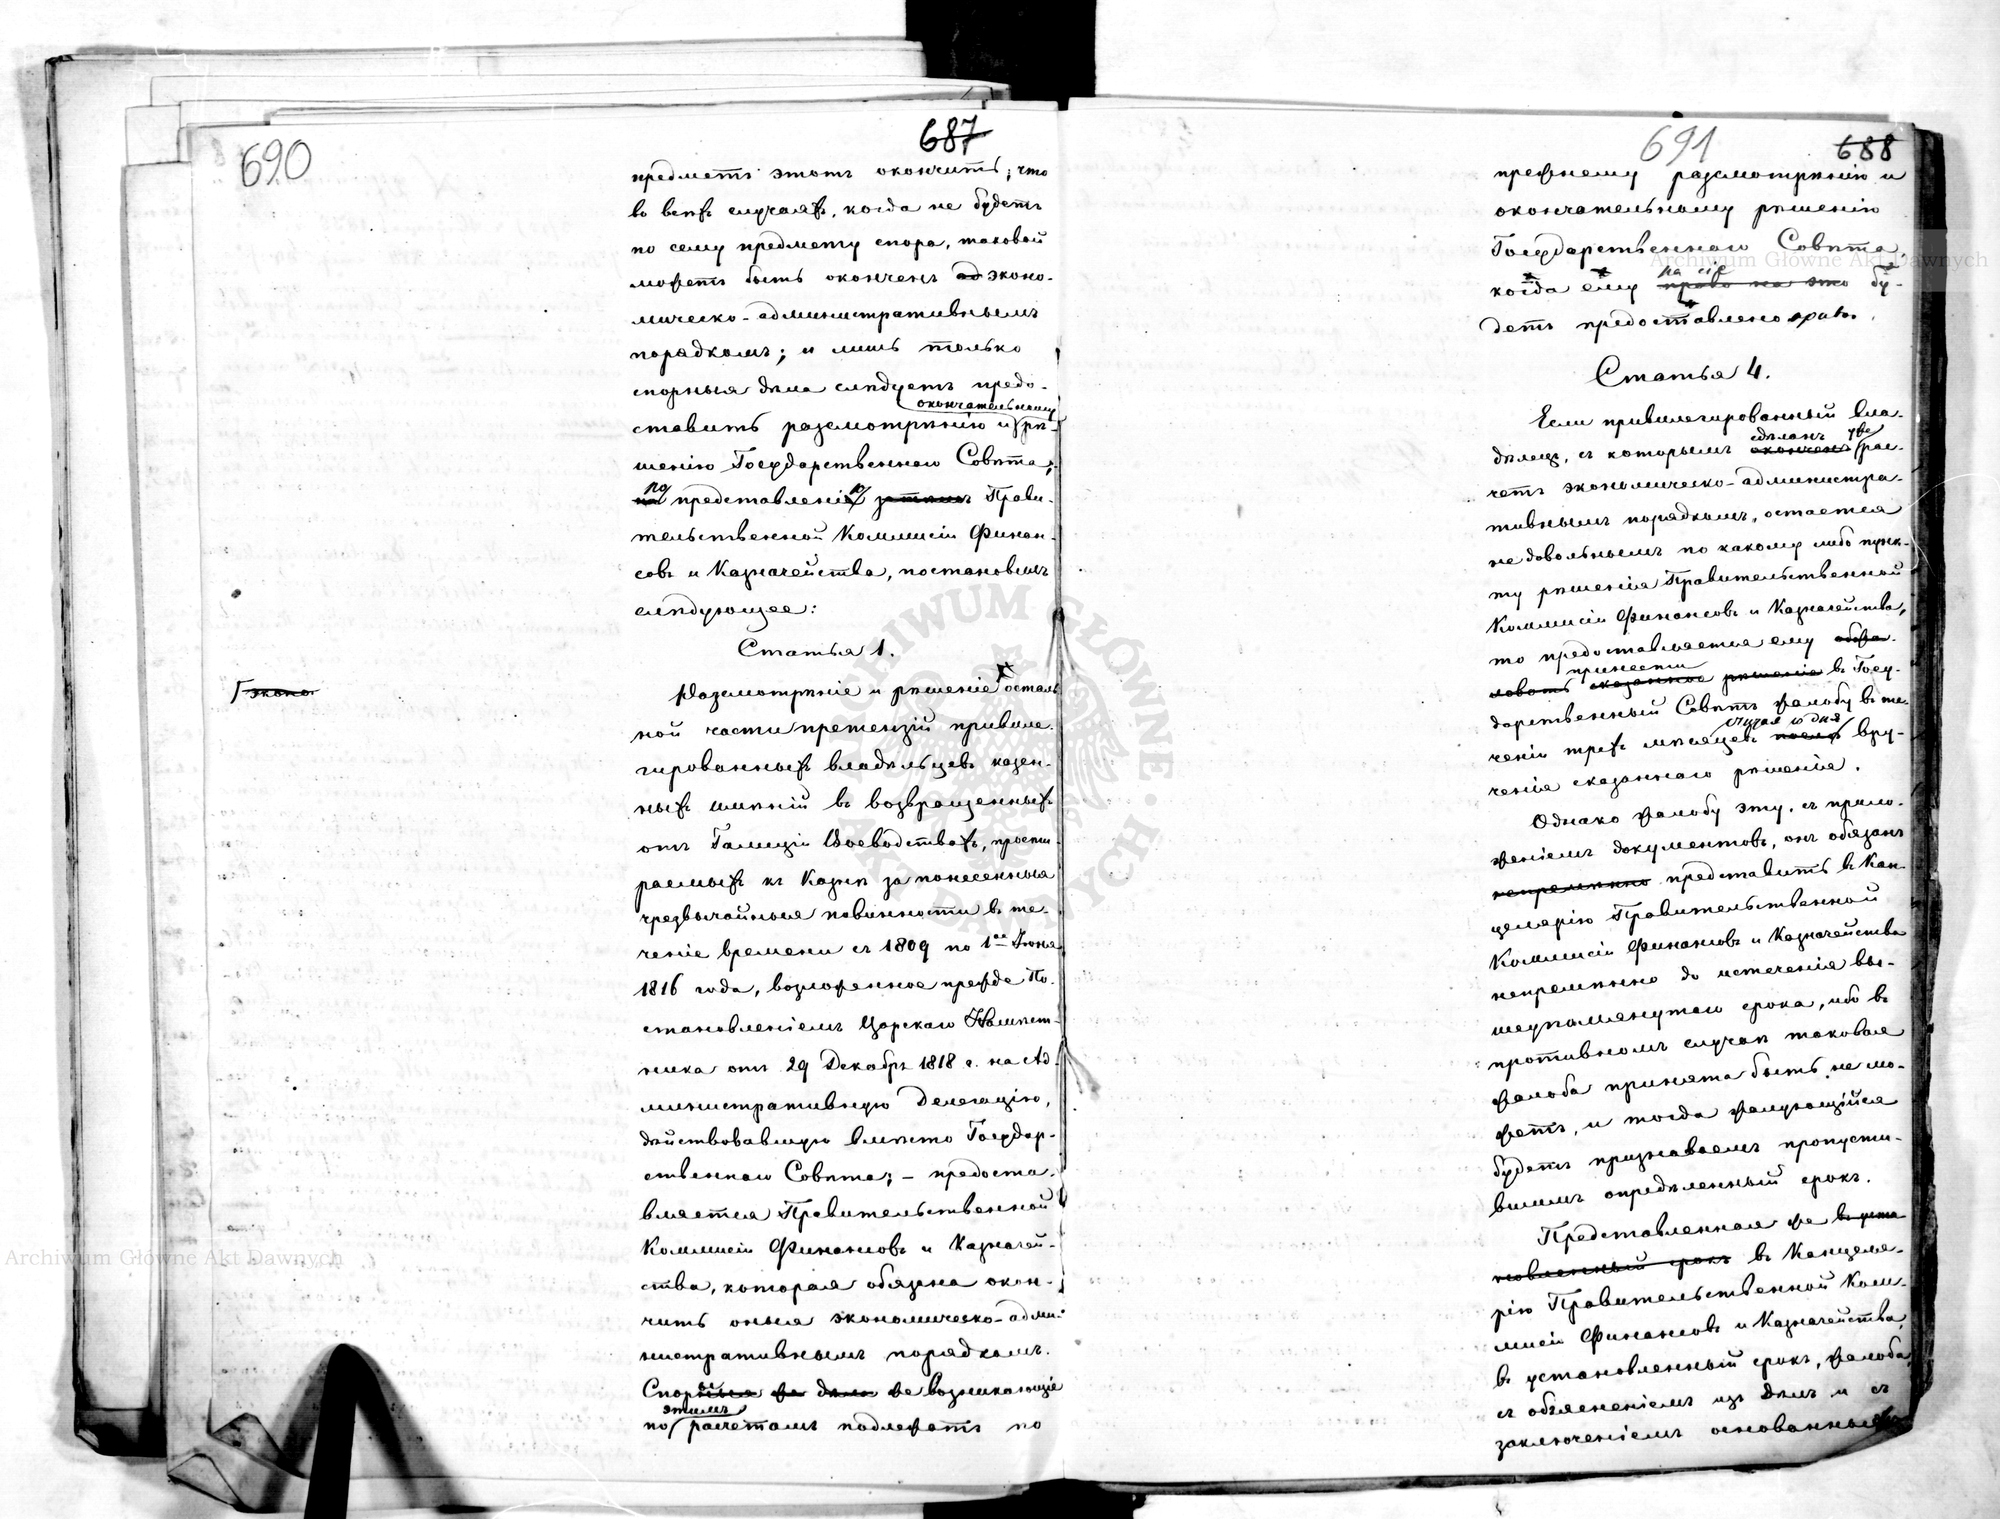 690
687
предметъ этотъ окончить; что
во всѣхъ случаяхъ, когда не будетъ
по сему предмету спора, таковой
можетъ быть оконченъ ад эконо-
мическо-административнымъ
порядкомъ; и лишь только
спорныя дѣла слѣдуетъ предо-
окончательному
ставить разсмотрѣнію и рѣ-
шенію Государственнаго Совѣта;
по представленію затѣмъ Прави-
тельственной Коммисіи Финан-
совъ и Казначейства, постановилъ
слѣдующее:
Статья 1.
эконо-
Разсмотрѣніе и рѣшеніе осталь
ной части претензій привиле-
гированныхъ владѣльцевъ казен-
ныхъ имѣній въ возвращенныхъ
отъ Галиціи Воеводствахъ, прости-
раемыхъ къ Казнѣ за понесенныя
чрезвычайныя повинности въ те-
ченіе времени съ 1809 по 1ое Іюня
1816 года, возложенное прежде По-
становленіемъ Царскаго Намѣст-
ника отъ 29 Декабря 1818 г. на Ад-
министративную Делегацію,
дѣйствовавшую вмѣсто Государ-
ственнаго Совѣта; — предоста-
вляется Правительственной
Коммисіи Финансовъ и Казначей-
ства, которая обязана окон-
чить оныя экономическо-адми-
нистративнымъ порядкомъ.
Спорныя же дѣла же возникающіе
этимъ
по расчетамъ подлежатъ по
691
688
прежнему разсмотрѣнію и
окончательному рѣшенію
Государственнаго Совѣта,
на сіе
когда ему право на это бу-
детъ предоставлено право.
Статья 4.
Если привилегированный вла-
сдѣланъ уже
дѣлецъ, съ которымъ оконченъ рас-
четъ экономическо-администра-
тивнымъ порядкомъ, остается
недовольнымъ по какому либо пунк-
ту рѣшенія Правительственной
Коммисіи Финансовъ и Казначейства,
то предоставляется ему обжа-
принести
ловать сказанное рѣшеніе въ Госу-
дарственный Совѣтъ жалобу въ те-
считая со дня
ченіи трехъ мѣсяцевъ послѣ вру-
ченія сказаннаго рѣшенія.
Однако жалобу эту, съ прило-
женіемъ документовъ, онъ обязанъ
непремѣнно представить въ Кан-
целярію Правительственной
Коммисіи Финансовъ и Казначейства
непремѣнно до истеченія вы-
шеупомянутаго срока, ибо въ
противномъ случаѣ таковая
жалоба принята быть не мо-
жетъ, и тогда жалующійся
будетъ признаваемъ пропусти-
вшимъ опредѣленный срокъ.
Представленная же въ уста-
новленный срокъ въ Канцеля-
рію Правительственной Ком-
мисіи Финансовъ и Казначейства,
въ установленный срокъ, жалоба,
съ объясненіемъ изъ дѣлъ и съ
заключеніемъ основаннымъ
Archiwum Główne Akt Dawnych
Archiwum Główne Akt Dawnych
ARCHIWUM GŁÓWNE AKT DAWNYCH